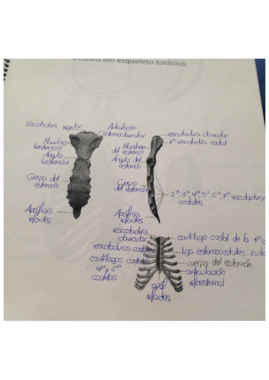 del esqueleto torácico.
Escotadura yugular
Articulación
esternoclavicular
Manubrio
esternón
Ángulo
esternón
Cuerpo del
esternón
Apófisis
xifoides
escotadura clavicular
1ª escotadura costal
Manubrio
del esternón
Ángulo del
esternón
Cuerpo
del esternón
2ª, 3ª, 4ª, 5ª, 6ª, 7ª escotaduras
costales
Apófisis
xifoides
escotadura
clavicular
escotaduras costales
cartílagos costales
costillas
cartílago costal de la 1ª
cuerpo del esternón
articulación
xifoides